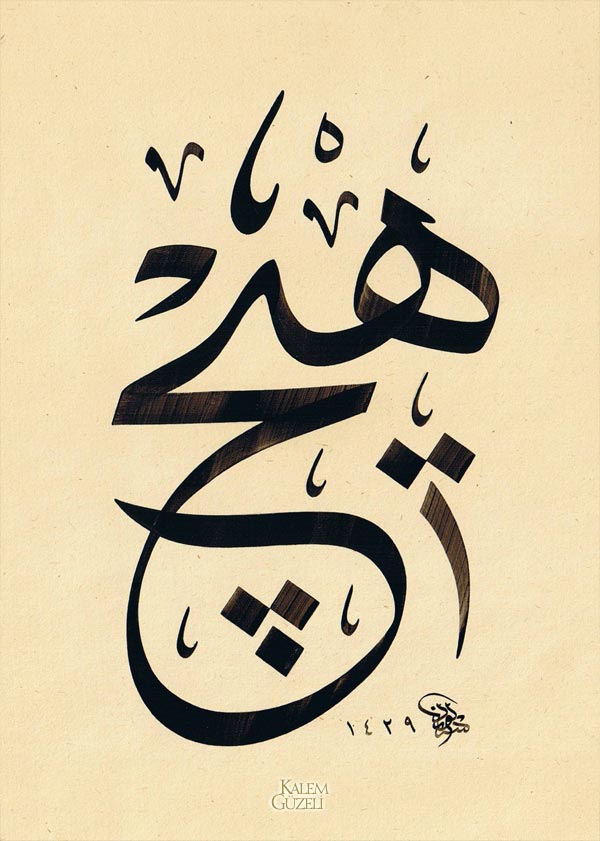 هيچ
١٤٢٩
KALEM
GÜZELİ